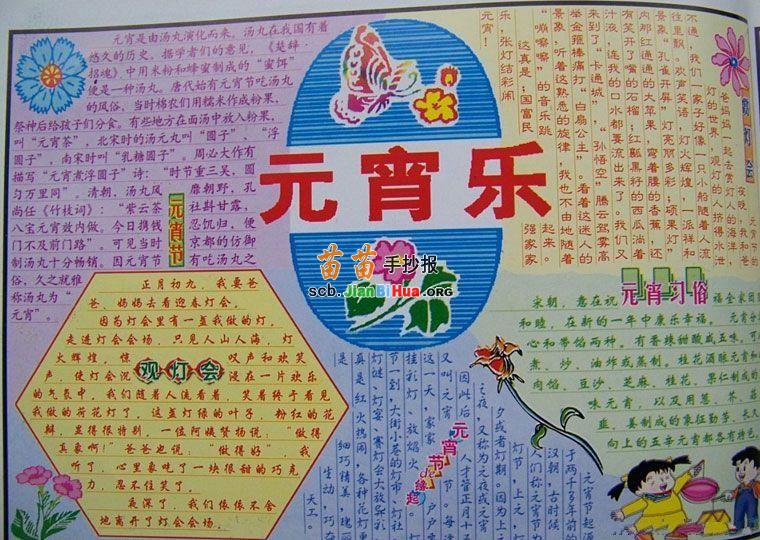 元宵是由汤丸演化而来，汤丸在我国有着
悠久的历史。据学者们的意见，《楚辞·
招魂》中用米粉和蜂蜜制成的“蜜饵”
便是一种汤丸。唐代始有元宵节吃汤丸
的风俗，当时棉农们用糯米作成粉果，
祭神后给孩子们分食。有些地方在面汤中放入粉果，
叫“元宵茶”，北宋时的汤元丸叫“圆子”、“浮
圆子”，南宋时叫“乳糖圆子”。周必大作有
描写“元宵煮浮圆子”诗：“时节重三吴，圆
匀万里同”。清朝，汤丸风靡朝野，孔
尚任《竹枝词》：“紫云茶社斟甘露，
八宝元宵效内做。今日携钱忍饥归，便
门不及前门路”。可见当时京都的仿御
制汤丸十分畅销。因元宵节有吃汤丸之
俗，久之就雅
称汤丸为“
元宵”。
元宵节
元宵乐
苗苗手抄报
scb.JianBiHua.ORG
乐，张灯结彩闹
元宵！
这真是：国富民
强家家
“嘣嚓嚓”的音乐跳
起来。
景象，听着这熟悉的旋律，我也不由地随着
举金箍棒痛打“白扇公主”。看着这迷人的
来到了“卡通城”，“孙悟空”腾云驾雾高
汁液，连我的口水都要流出来了。我们又
有笑开了嘴的石榴；红瓤黑籽的西瓜淌着
内那红通通的大苹果，弯着腰的香蕉，还
景象“孔雀开屏”灯亮丽多彩；硕果灯“
往里飘。欢声笑语，灯火辉煌，一派祥和
不通，我们一家子好像一只小船随着人流
灯的世界，观灯的人人挤得水泄
爸妈妈一起去赏灯，
正月初九，我要爸
爸、妈妈去看迎春灯会。
因为灯会里有一盏我做的灯，
走进灯会会场，只见人山人海，灯
火辉煌，惊叹声和欢笑
声，使灯会沉浸在一片欢乐
的气氛中，我们随着人流看着，笑着终于看见
我做的荷花灯了，这盏灯绿的叶子，粉红的花
瓣，显得很特别，一位阿姨赞扬说：“做得
真象啊！”爸爸也说：“做得好”，我
听了，心里象吃了一块很甜的巧克
力，忍不住笑了。
夜深了，我们依依不舍
地离开了灯会会场。
观灯会
元宵习俗
宋朝，意在祝福全家团圆
和睦，在新的一年中康乐幸福。元宵分
心和带馅两种。有香辣甜酸咸五味，可
煮、炒、油炸或蒸制。桂花酒酿元宵和
肉馅、豆沙、芝麻、桂花、果仁制成的
味元宵，以及用葱、芥、蒜
韭、姜制成的象征勤劳、长久
向上的五辛元宵都各有特色。
元宵节的缘起
元宵节起源
于两千多年前的
汉朝，古时候
人们称元宵节为
灯节、上元，
夕或者灯期。因为上元
之夜，又称为元夜或元宵，
因此后人才管正月十五
又叫元宵节。每逢
这一天，家家户户
挂彩灯、放焰火。元宵
节一到，大街小巷的灯市、灯社、
灯谜、灯宴、赛灯会大放异彩，
真是红火热闹，各种花灯
细巧精美，瑰丽
生动，巧夺
天工。